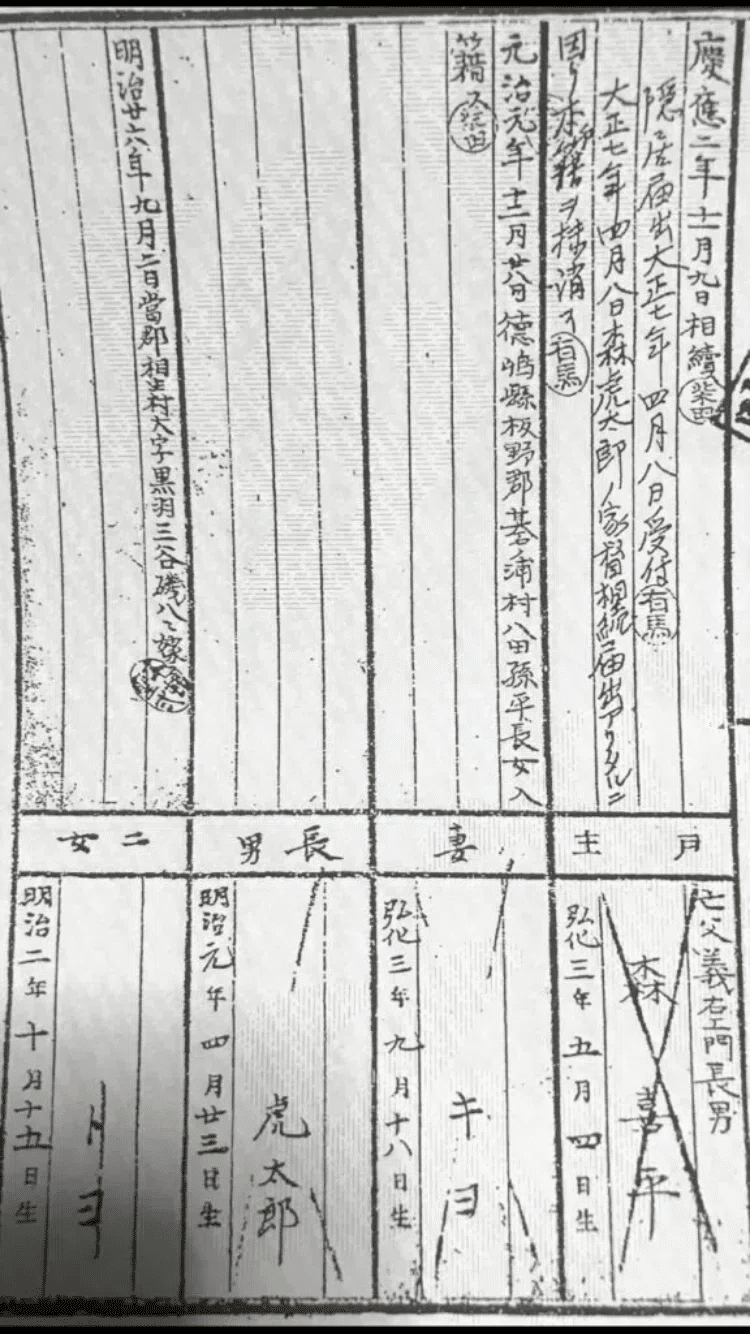 慶應二年十一月九日相續 柴田
隠居届出大正七年四月八日受付 有馬
大正七年四月八日森虎太郎ノ家督相続届出アリタルニ
因リ本籍ヲ抹消ス 有馬
戸主
亡父義右エ門長男
森喜平
弘化三年五月四日生
元治元年十二月廿八日徳島縣板野郡基浦村八田孫平長女入
籍ス 柴田
妻
キヨ
弘化三年九月十八日生
長男
虎太郎
明治元年四月廿三日生
明治廿六年九月二日當郡相生村大字黒羽三谷磯八ヘ嫁
二女
トヨ
明治二年十月十五日生